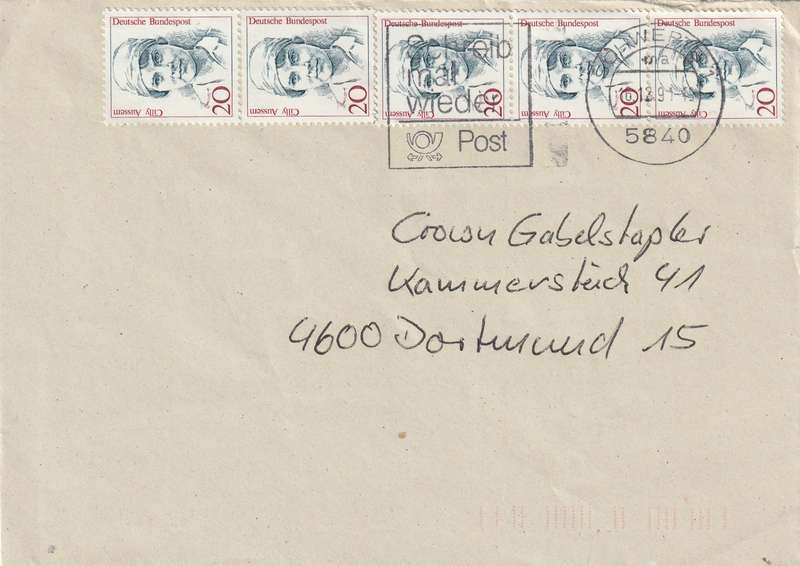 Deutsche Bundespost
Cilly Aussem
20
Deutsche Bundespost
Cilly Aussem
20
Deutsche Bundespost
20
Deutsche Bundespost
Cilly Aussem
20
Deutsche Bundespost
Cilly Aussem
20
Schreib
mal
wieder
Post
5840
Crown Gabelstapler
Kammerstück 41
4600 Dortmund 15